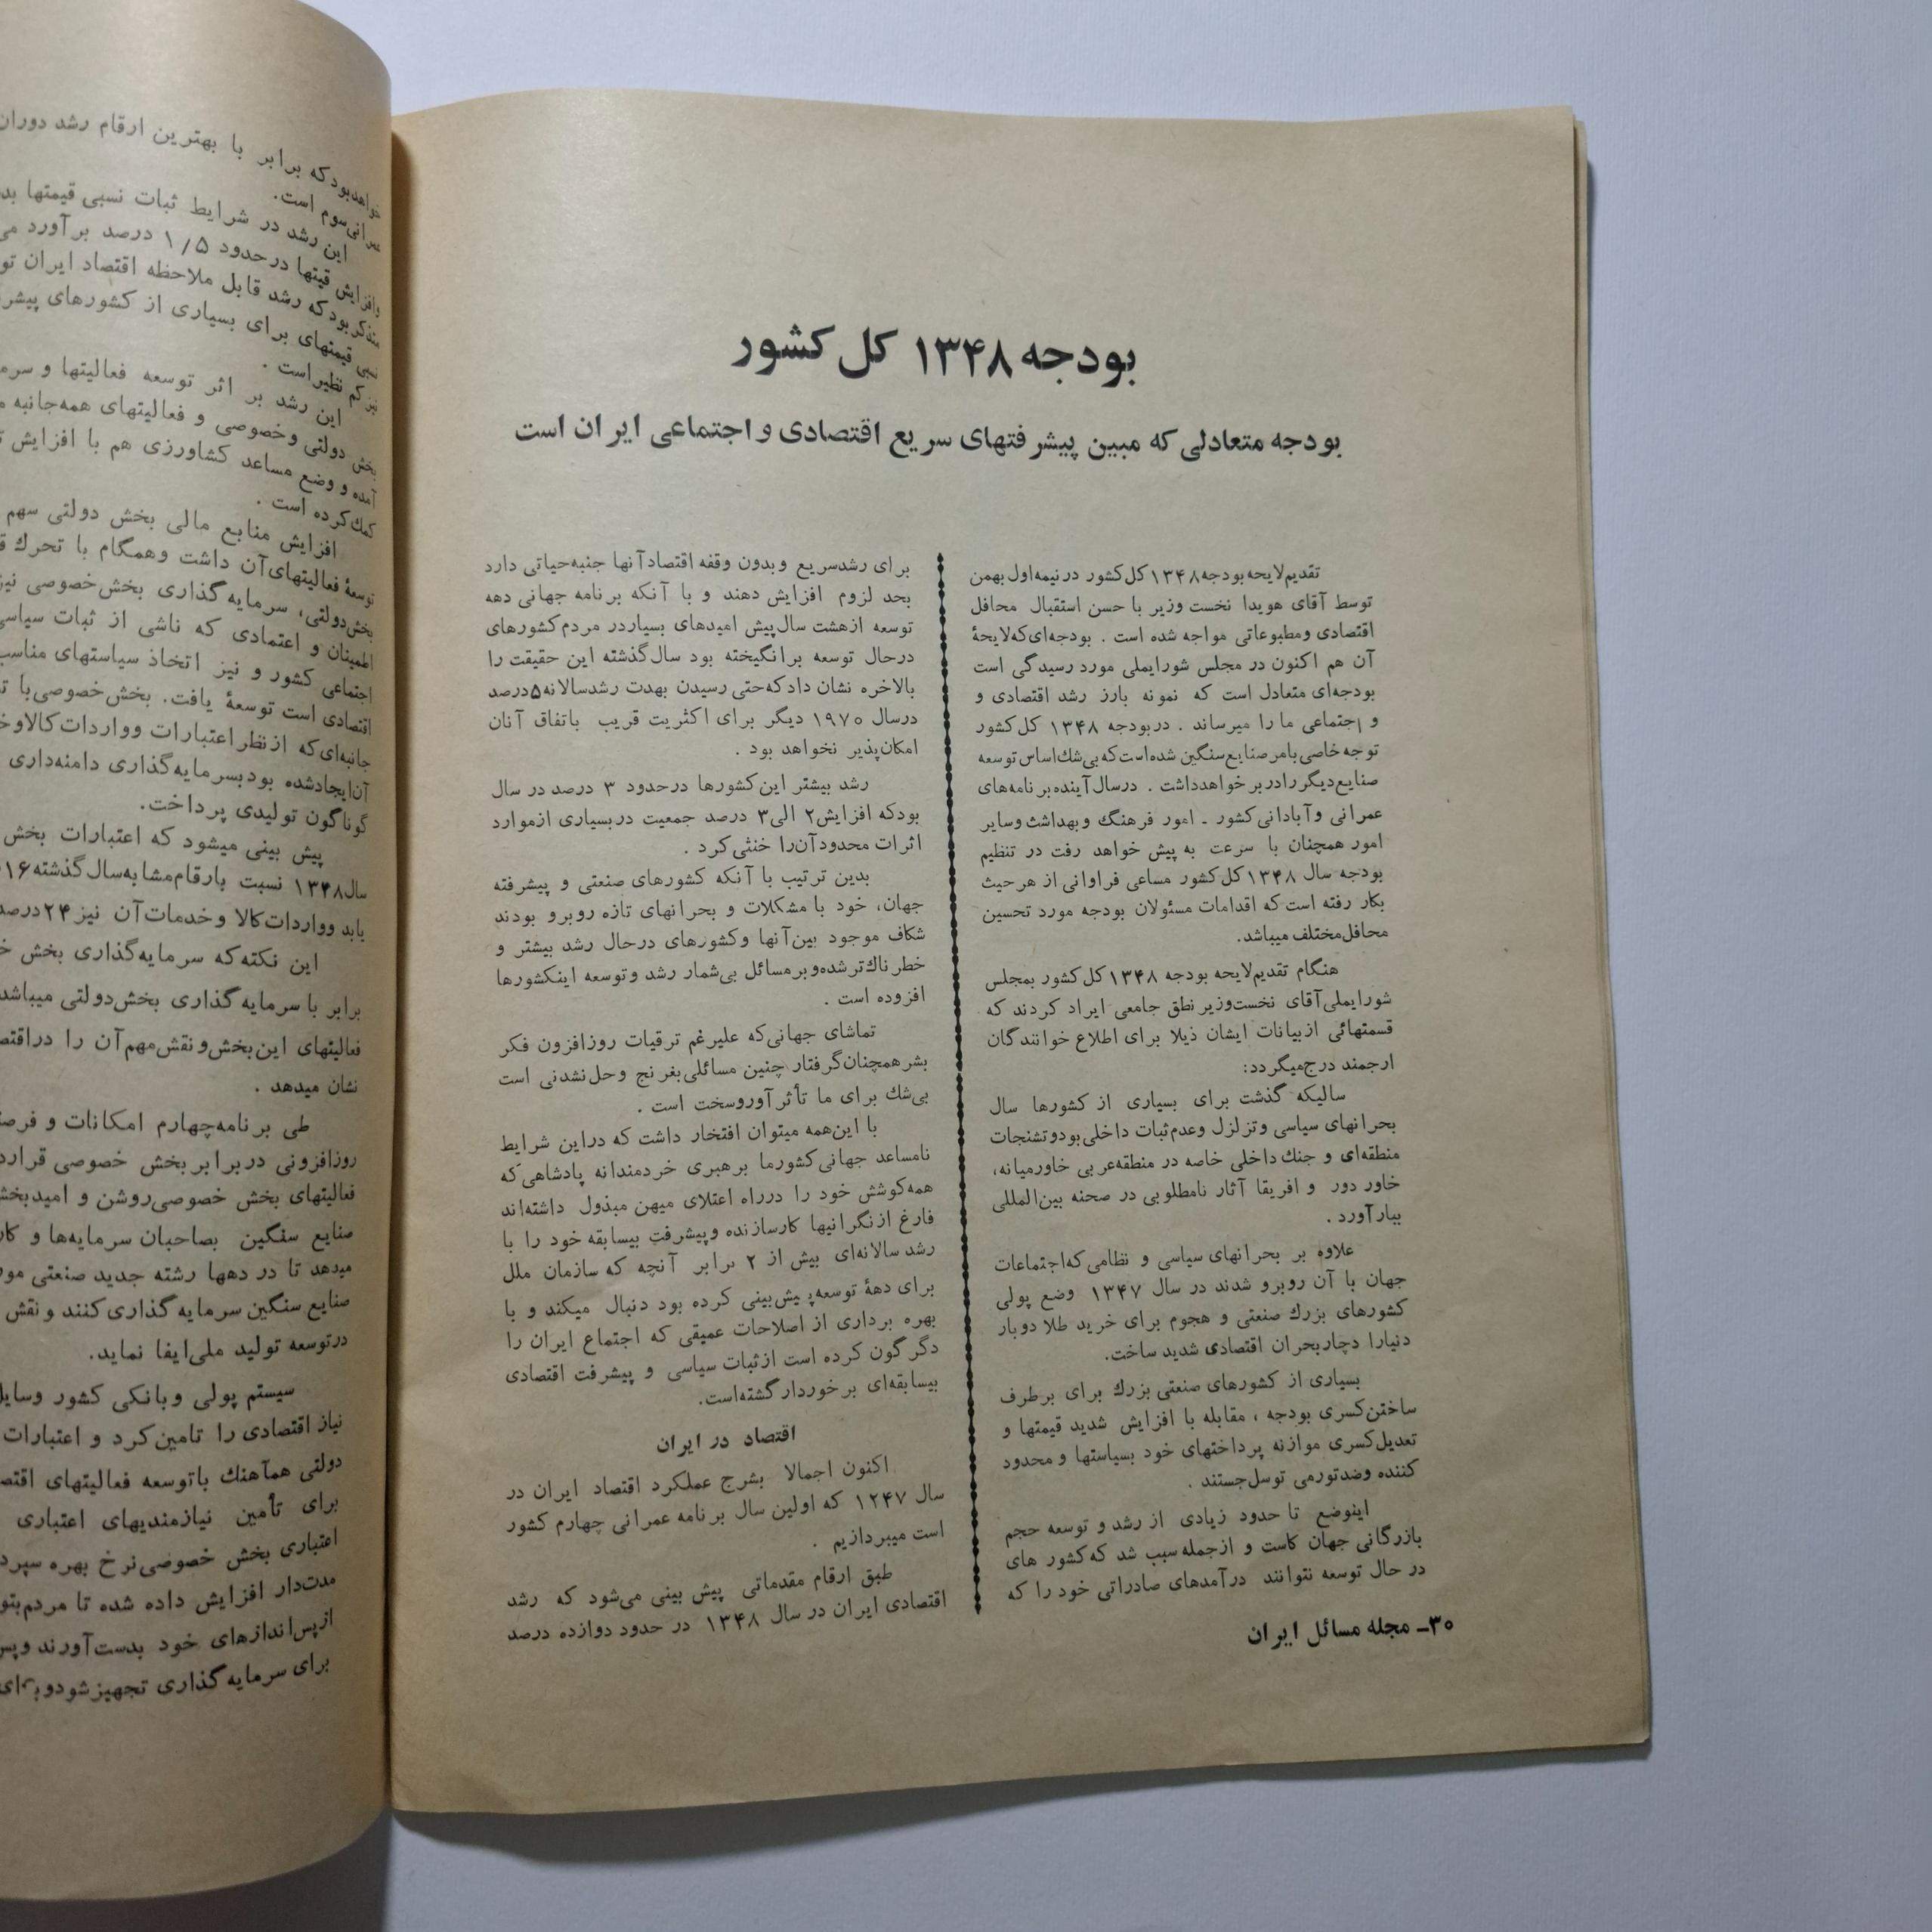 بودجه ۱۳۴۸ کل کشور
بودجه متعادلی که مبین پیشرفتهای سریع اقتصادی و اجتماعی ایران است
تقدیم لایحه بودجه ۱۳۴۸ کل کشور در نیمه اول بهمن
توسط آقای هویدا نخست وزیر با حسن استقبال محافل
اقتصادی ومطبوعاتی مواجه شده است . بودجه‌ای که لایحهٔ
آن هم اکنون در مجلس شورایملی مورد رسیدگی است
بودجه‌ای متعادل است که نمونه بارز رشد اقتصادی و
و اجتماعی ما را میرساند . در بودجه ۱۳۴۸ کل کشور
توجه خاصی بامر صنایع سنگین شده است که بی‌شك اساس توسعه
صنایع دیگر را در بر خواهد داشت . در سال آینده برنامه‌های
عمرانی و آبادانی کشور ـ امور فرهنگ و بهداشت وسایر
امور همچنان با سرعت به پیش خواهد رفت در تنظیم
بودجه سال ۱۳۴۸ کل کشور مساعی فراوانی از هر حیث
بکار رفته است که اقدامات مسئولان بودجه مورد تحسین
محافل مختلف میباشد.
هنگام تقدیم لایحه بودجه ۱۳۴۸ کل کشور بمجلس
شورایملی آقای نخست‌وزیر نطق جامعی ایراد کردند که
قسمتهائی از بیانات ایشان ذیلا برای اطلاع خوانندگان
ارجمند درج میگردد:
سالیکه گذشت برای بسیاری از کشورها سال
بحرانهای سیاسی و تزلزل وعدم ثبات داخلی بود و تشنجات
منطقه‌ای و جنك داخلی خاصه در منطقه عربی خاورمیانه،
خاور دور و افریقا آثار نامطلوبی در صحنه بین‌المللی
ببار آورد .
علاوه بر بحرانهای سیاسی و نظامی که اجتماعات
جهان با آن روبرو شدند در سال ۱۳۴۷ وضع پولی
کشورهای بزرك صنعتی و هجوم برای خرید طلا دو بار
دنیارا دچار بحران اقتصادی شدید ساخت.
بسیاری از کشورهای صنعتی بزرك برای بر طرف
ساختن کسری بودجه ، مقابله با افزایش شدید قیمتها و
تعدیل کسری موازنه پرداختهای خود بسیاستها و محدود
کننده وضدتورمی توسل جستند .
اینوضع تا حدود زیادی از رشد و توسعه حجم
بازرگانی جهان کاست و از جمله سبب شد که کشور های
در حال توسعه نتوانند درآمدهای صادراتی خود را که
برای رشد سریع و بدون وقفه اقتصاد آنها جنبه حیاتی دارد
بحد لزوم افزایش دهند و با آنکه برنامه جهانی دهه
توسعه از هشت سال پیش امیدهای بسیار در مردم کشورهای
درحال توسعه برانگیخته بود سال گذشته این حقیقت را
بالاخره نشان داد که حتی رسیدن بهدت رشد سالانه ۵ درصد
درسال ۱۹۷۰ دیگر برای اکثریت قریب باتفاق آنان
امکان‌پذیر نخواهد بود .
رشد بیشتر این کشورها در حدود ۳ درصد در سال
بود که افزایش ۲ الی ۳ درصد جمعیت در بسیاری از موارد
اثرات محدود آن‌را خنثی کرد .
بدین ترتیب با آنکه کشورهای صنعتی و پیشرفته
جهان، خود با مشکلات و بحرانهای تازه روبرو بودند
شکاف موجود بین آنها و کشورهای درحال رشد بیشتر و
خطرناك‌تر شده و بر مسائل بی‌شمار رشد و توسعه اینکشورها
افزوده است .
تماشای جهانی که علیرغم ترقیات روزافزون فکر
بشر همچنان گرفتار چنین مسائلی بغرنج وحل نشدنی است
بی‌شك برای ما تأثر آور و سخت است .
با این‌همه میتوان افتخار داشت که در این شرایط
نامساعد جهانی کشور ما برهبری خردمندانه پادشاهی که
همه کوشش خود را در راه اعتلای میهن مبذول داشته‌اند
فارغ از نگرانیها کار سازنده و پیشرفت بیسابقه خود را با
رشد سالانه‌ای بیش از ۲ برابر آنچه که سازمان ملل
برای دههٔ توسعه پیش‌بینی کرده بود دنبال میکند و با
بهره برداری از اصلاحات عمیقی که اجتماع ایران را
دگرگون کرده است از ثبات سیاسی و پیشرفت اقتصادی
بیسابقه‌ای برخوردار گشته‌است.
اقتصاد در ایران
اکنون اجمالا بشرح عملکرد اقتصاد ایران در
سال ۱۲۴۷ که اولین سال برنامه عمرانی چهارم کشور
است میپردازیم .
طبق ارقام مقدماتی پیش بینی می‌شود که رشد
اقتصادی ایران در سال ۱۳۴۸ در حدود دوازده درصد
۳۰ـ مجله مسائل ایران
خواهد بود که برابر با بهترین ارقام رشد دوران
عمرانی سوم است.
این رشد در شرایط ثبات نسبی قیمتها
وافزایش قیتها در حدود ۱/۵ درصد برآورد
متذکر بود که رشد قابل ملاحظه اقتصاد ایران
نسبی قیمتهای برای بسیاری از کشورهای
نیز کم نظیر است .
این رشد بر اثر توسعه فعالیتها و
بخش دولتی وخصوصی و فعالیتهای همه‌جانبه
آمده و وضع مساعد کشاورزی هم با افزایش
کمك کرده است .
افزایش منابع مالی بخش دولتی سهم
توسعهٔ فعالیتهای آن داشت وهمگام با تحرك
بخش دولتی، سرمایه گذاری بخش خصوصی نیز
اطمینان و اعتمادی که ناشی از ثبات
اجتماعی کشور و نیز اتخاذ سیاستهای
اقتصادی است توسعهٔ یافت. بخش خصوصی با
جانبه‌ای که از نظر اعتبارات وواردات کالا
آن ایجاد شده بود بسرمایه گذاری دامنه‌داری
گوناگون تولیدی پرداخت.
پیش بینی میشود که اعتبارات بخش
سال ۱۳۴۸ نسبت بارقام مشابه سال گذشته ۱۶
یابد وواردات کالا و خدمات آن نیز ۲۴ درصد
این نکته که سرمایه گذاری بخش
برابر با سرمایه گذاری بخش دولتی میباشد
فعالیتهای این بخش و نقش مهم آن را در
نشان میدهد .
طی برنامه چهارم امکانات و
روزافزونی در برابر بخش خصوصی
فعالیتهای بخش خصوصی روشن و
صنایع سنگین بصاحبان سرمایه‌ها و
میدهد تا در دهها رشته جدید صنعتی
صنایع سنگین سرمایه گذاری کنند و نقش
در توسعه تولید ملی ایفا نماید.
سیستم پولی و بانکی کشور
نیاز اقتصادی را تامین کرد و اعتبارات
دولتی هم‌آهنك با توسعه فعالیتهای
برای تأمین نیازمندیهای اعتباری
اعتباری بخش خصوصی نرخ بهره
مدت‌دار افزایش داده شده تا مردم
از پس‌اندازهای خود بدست آورند
برای سرمایه گذاری تجهیز شود